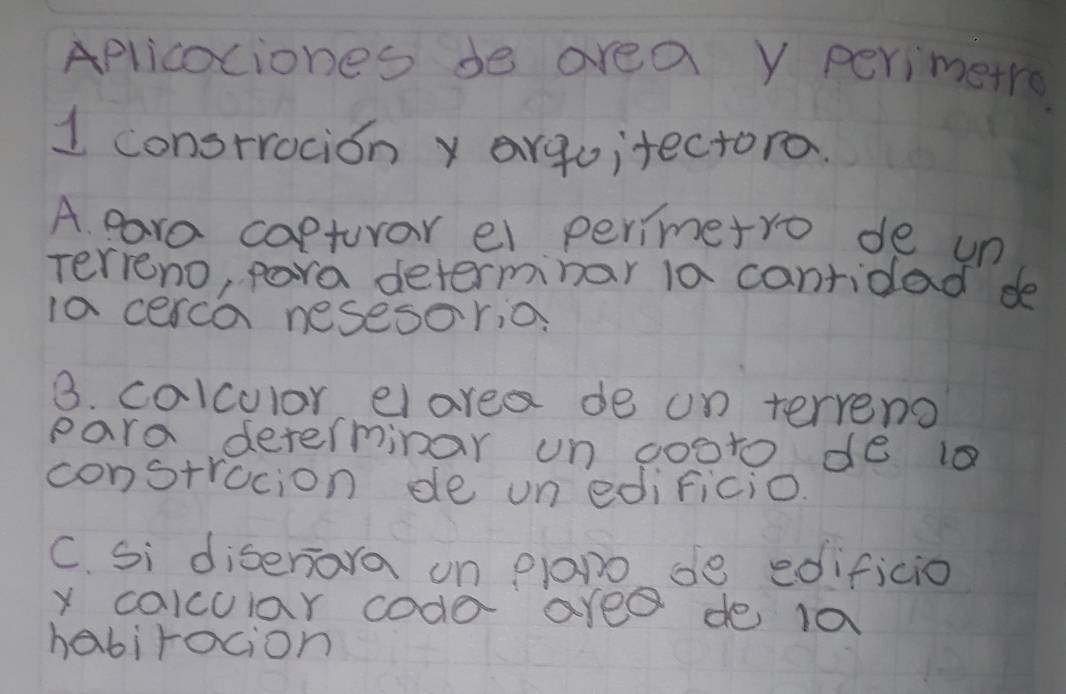 Aplicaciones de area y perimetro.
1 consrroción y arqoitectora.
A. Para capturar el perímetro de un
Terreno, para determinar la cantidad de
la cerca nesesaria.
B. calcular el area de un terreno
para determinar un costo de la
constrocion de un edificio.
C. si diseñara un plano de edificio
y calcular cada area de la
habitacion